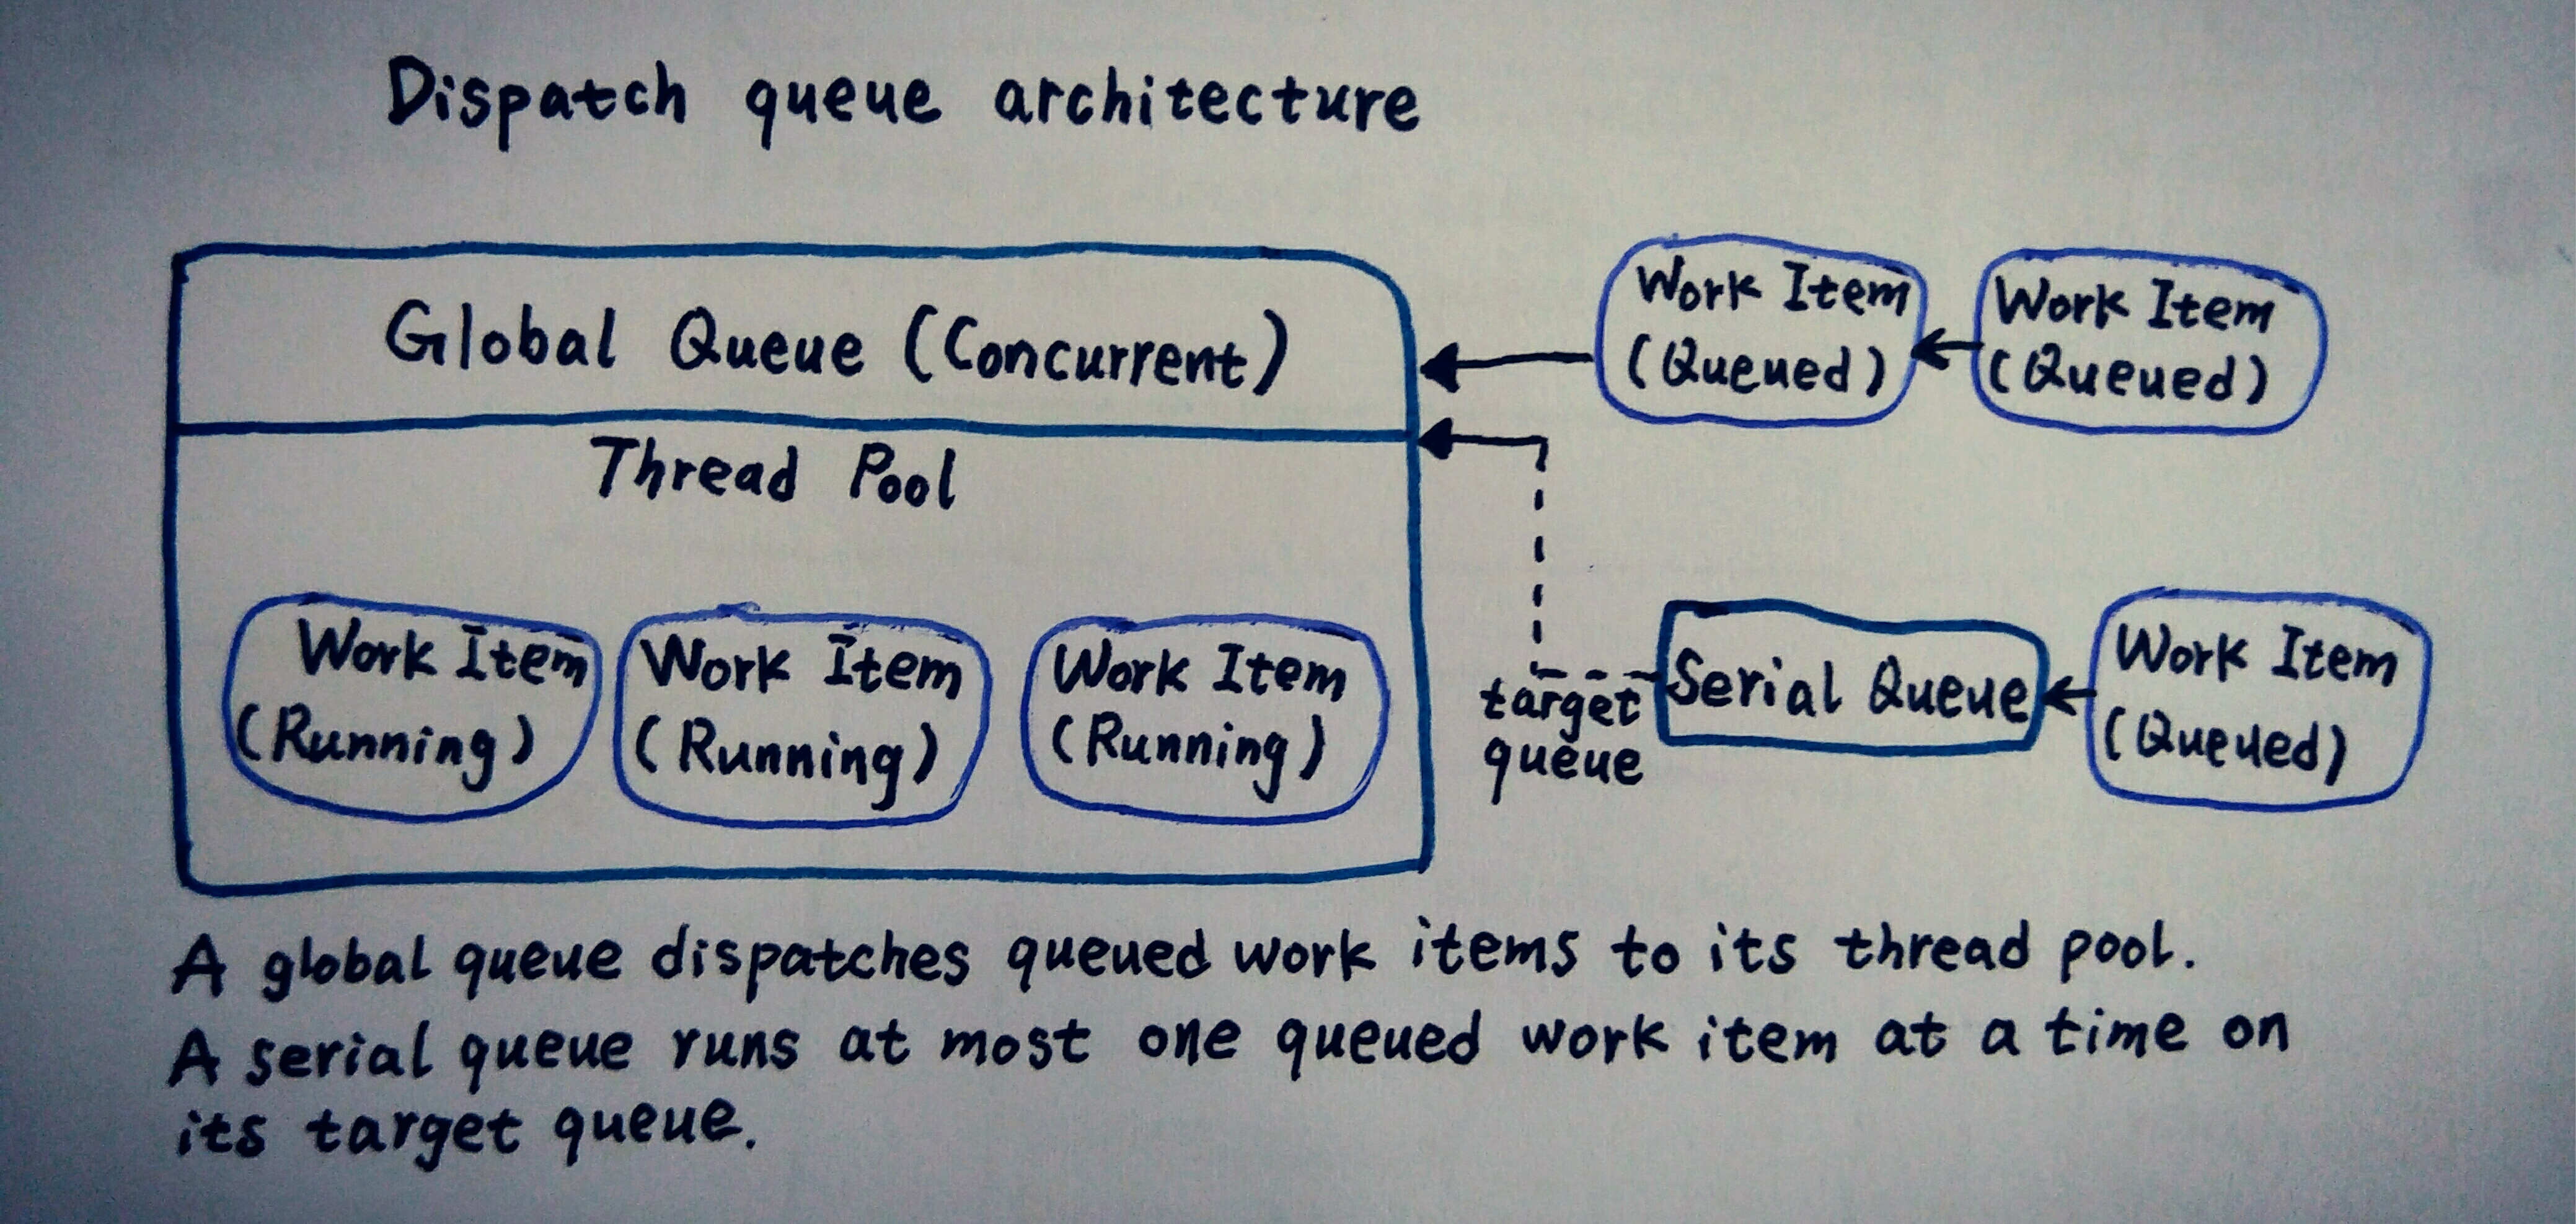 Dispatch queue architecture
Global Queue (Concurrent)
Thread Pool
Work Item
(Running)
Work Item
(Running)
Work Item
(Running)
Work Item
(Queued)
Work Item
(Queued)
target
queue
Serial Queue
Work Item
(Queued)
A global queue dispatches queued work items to its thread pool.
A serial queue runs at most one queued work item at a time on
its target queue.